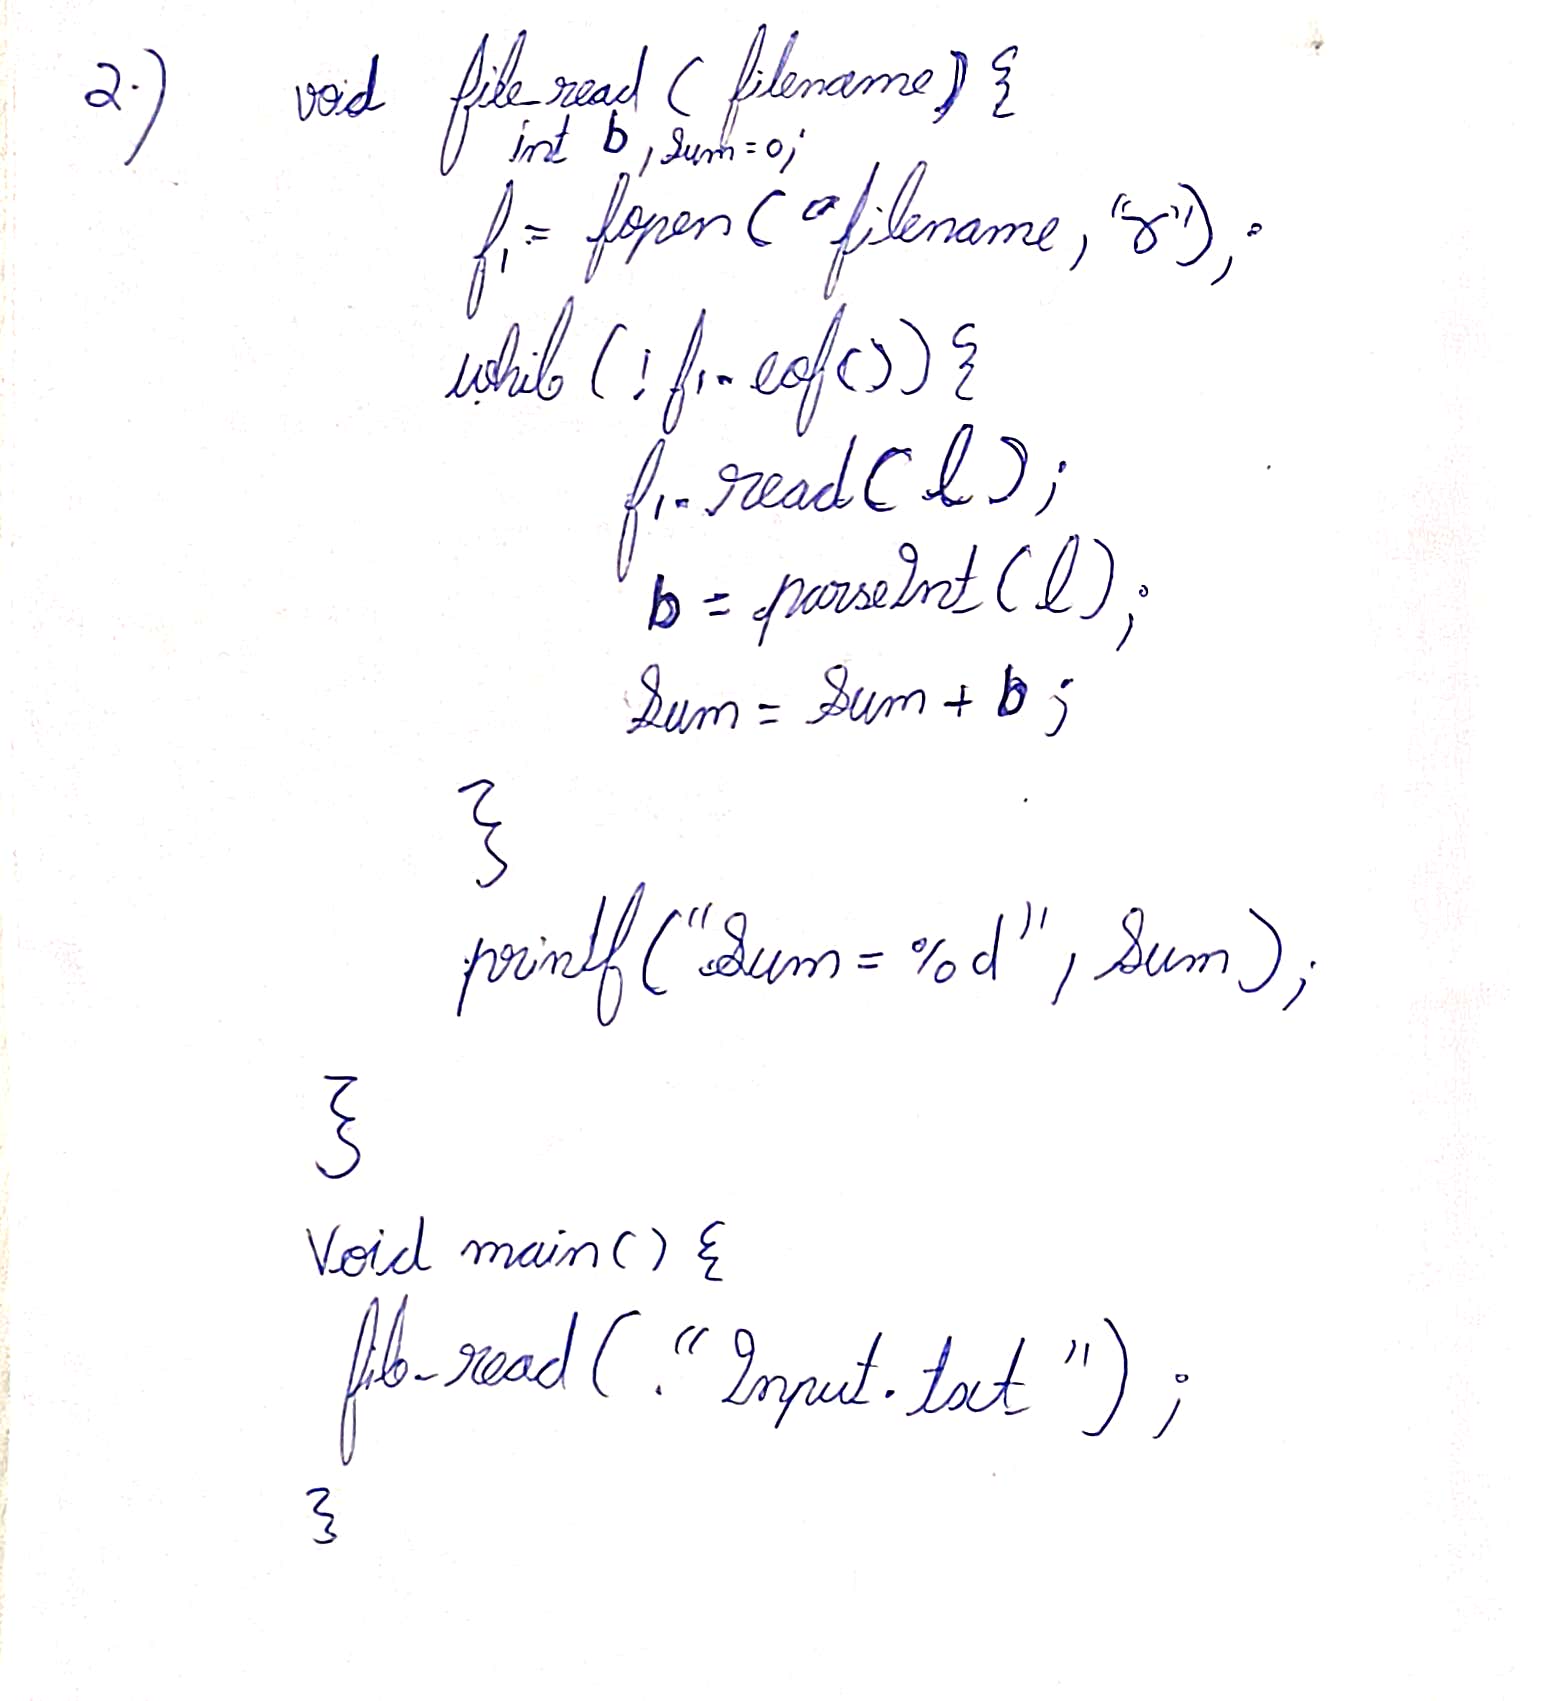 2.) void file_read ( filename) {
int b, sum=0;
f1 = fopen ( filename, "r");
while (! f1. eof()) {
f1. read( l );
b = parseInt ( l );
Sum = Sum + b ;
}
printf ("Sum = %d", Sum);
}
Void main() {
file_read ( "Input.txt");
}